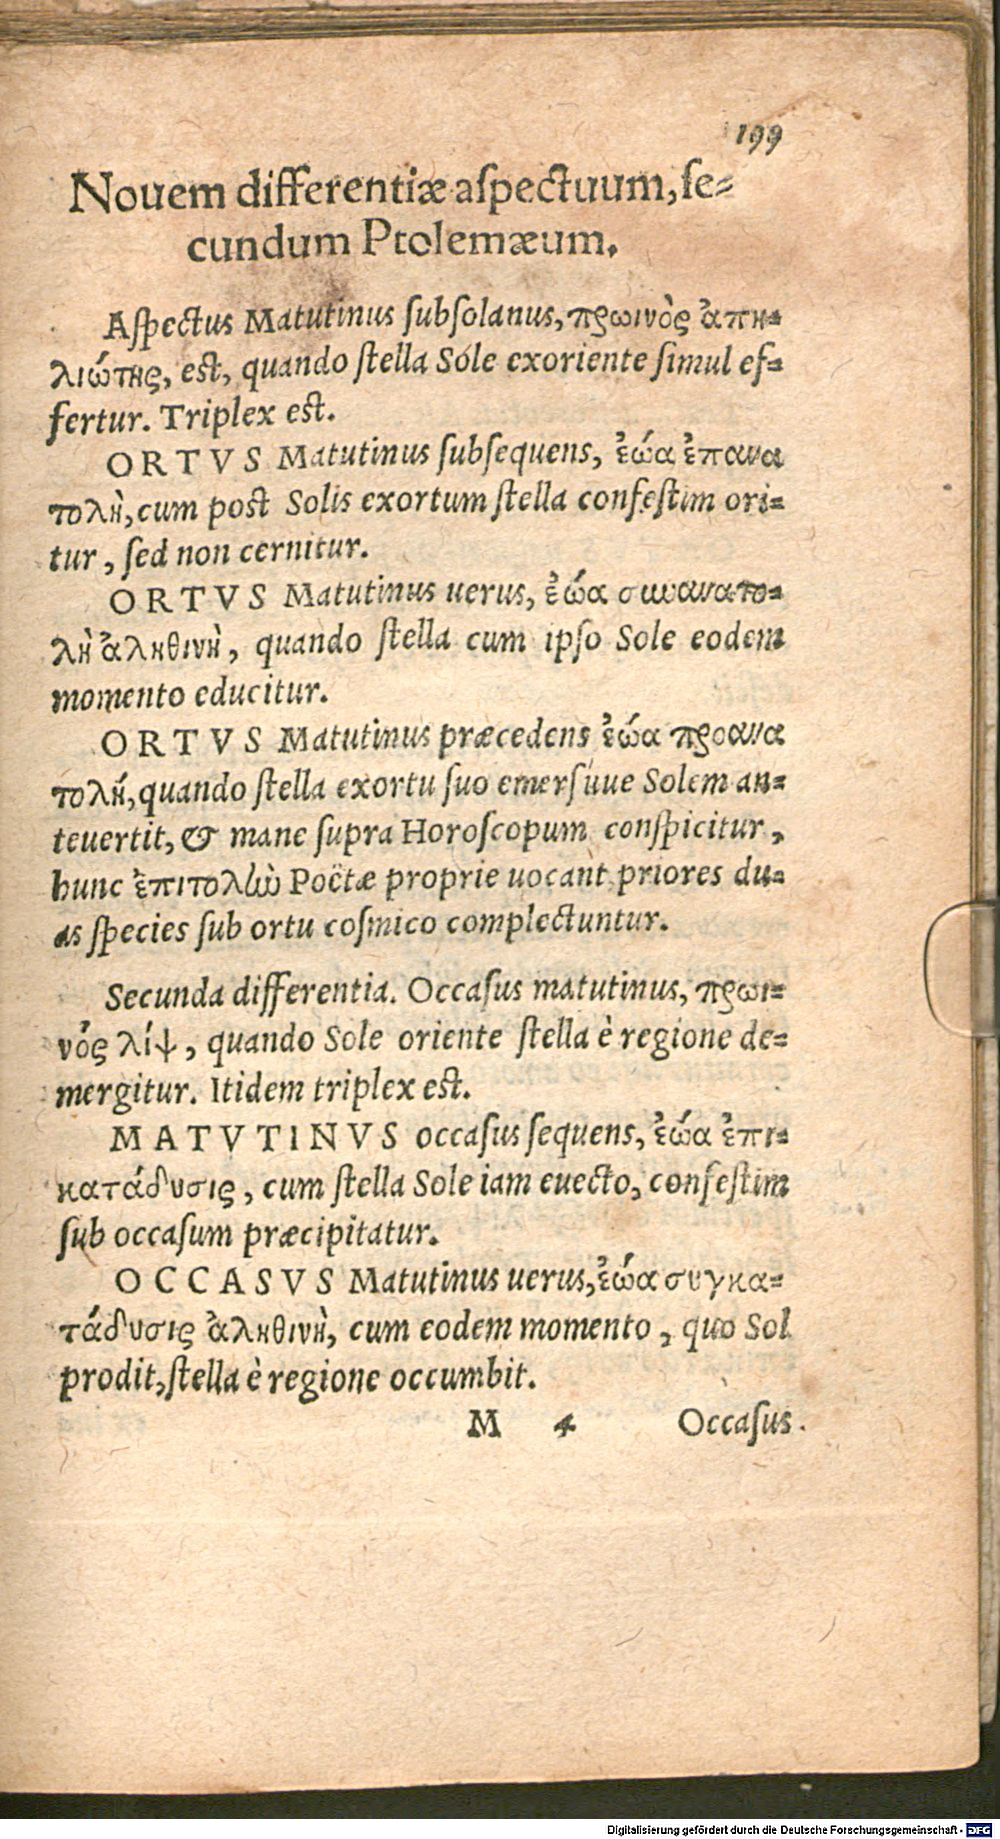 199
Nouem differentiæ aſpectuum, ſe-
cundum Ptolemæum.
Aſpectus Matutinus ſubſolanus, πρωινὸς ἀπη-
λιώτης, est, quando ſtella Sole exoriente ſimul ef-
fertur. Triplex est.
ORTVS Matutinus ſubſequens, ἑώα ἐπανα
τολὴ, cum post Solis exortum ſtella confeſtim ori-
tur, ſed non cernitur.
ORTVS Matutinus uerus, ἑώα συνανατο-
λὴ ἀληθινὴ, quando ſtella cum ipſo Sole eodem
momento educitur.
ORTVS Matutinus præcedens ἑώα προανα
τολή, quando ſtella exortu ſuo emerſúue Solem an-
teuertit, & mane ſupra Horoſcopum conſpicitur,
hunc ἐπιτολὼ Poëtæ proprie uocant priores du-
as ſpecies ſub ortu coſmico complectuntur.
Secunda differentia. Occaſus matutinus, πρωι-
νὸς λίψ, quando Sole oriente ſtella è regione de-
mergitur. Itidem triplex est.
MATVTINVS occaſus ſequens, ἑώα ἐπι-
κατάδυσις, cum ſtella Sole iam euecto, confeſtim
ſub occaſum præcipitatur.
OCCASVS Matutinus uerus, ἑώα συγκα-
τάδυσις ἀληθινὴ, cum eodem momento, quo Sol
prodit, ſtella è regione occumbit.
M 4 Occaſus
Digitalisierung gefördert durch die Deutsche Forschungsgemeinschaft - DFG